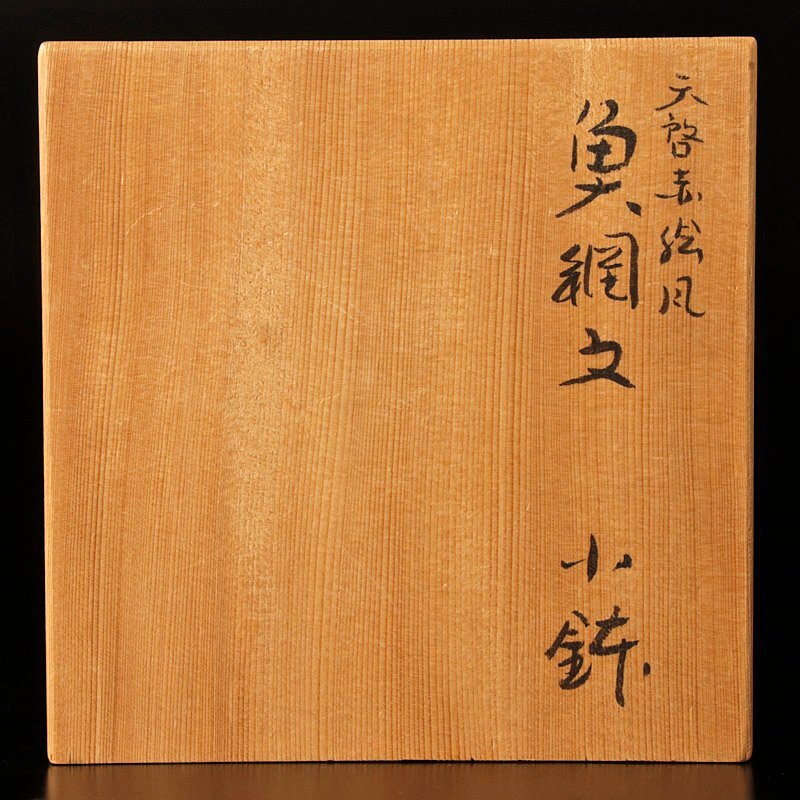 天啓赤絵風
魚網文 小鉢